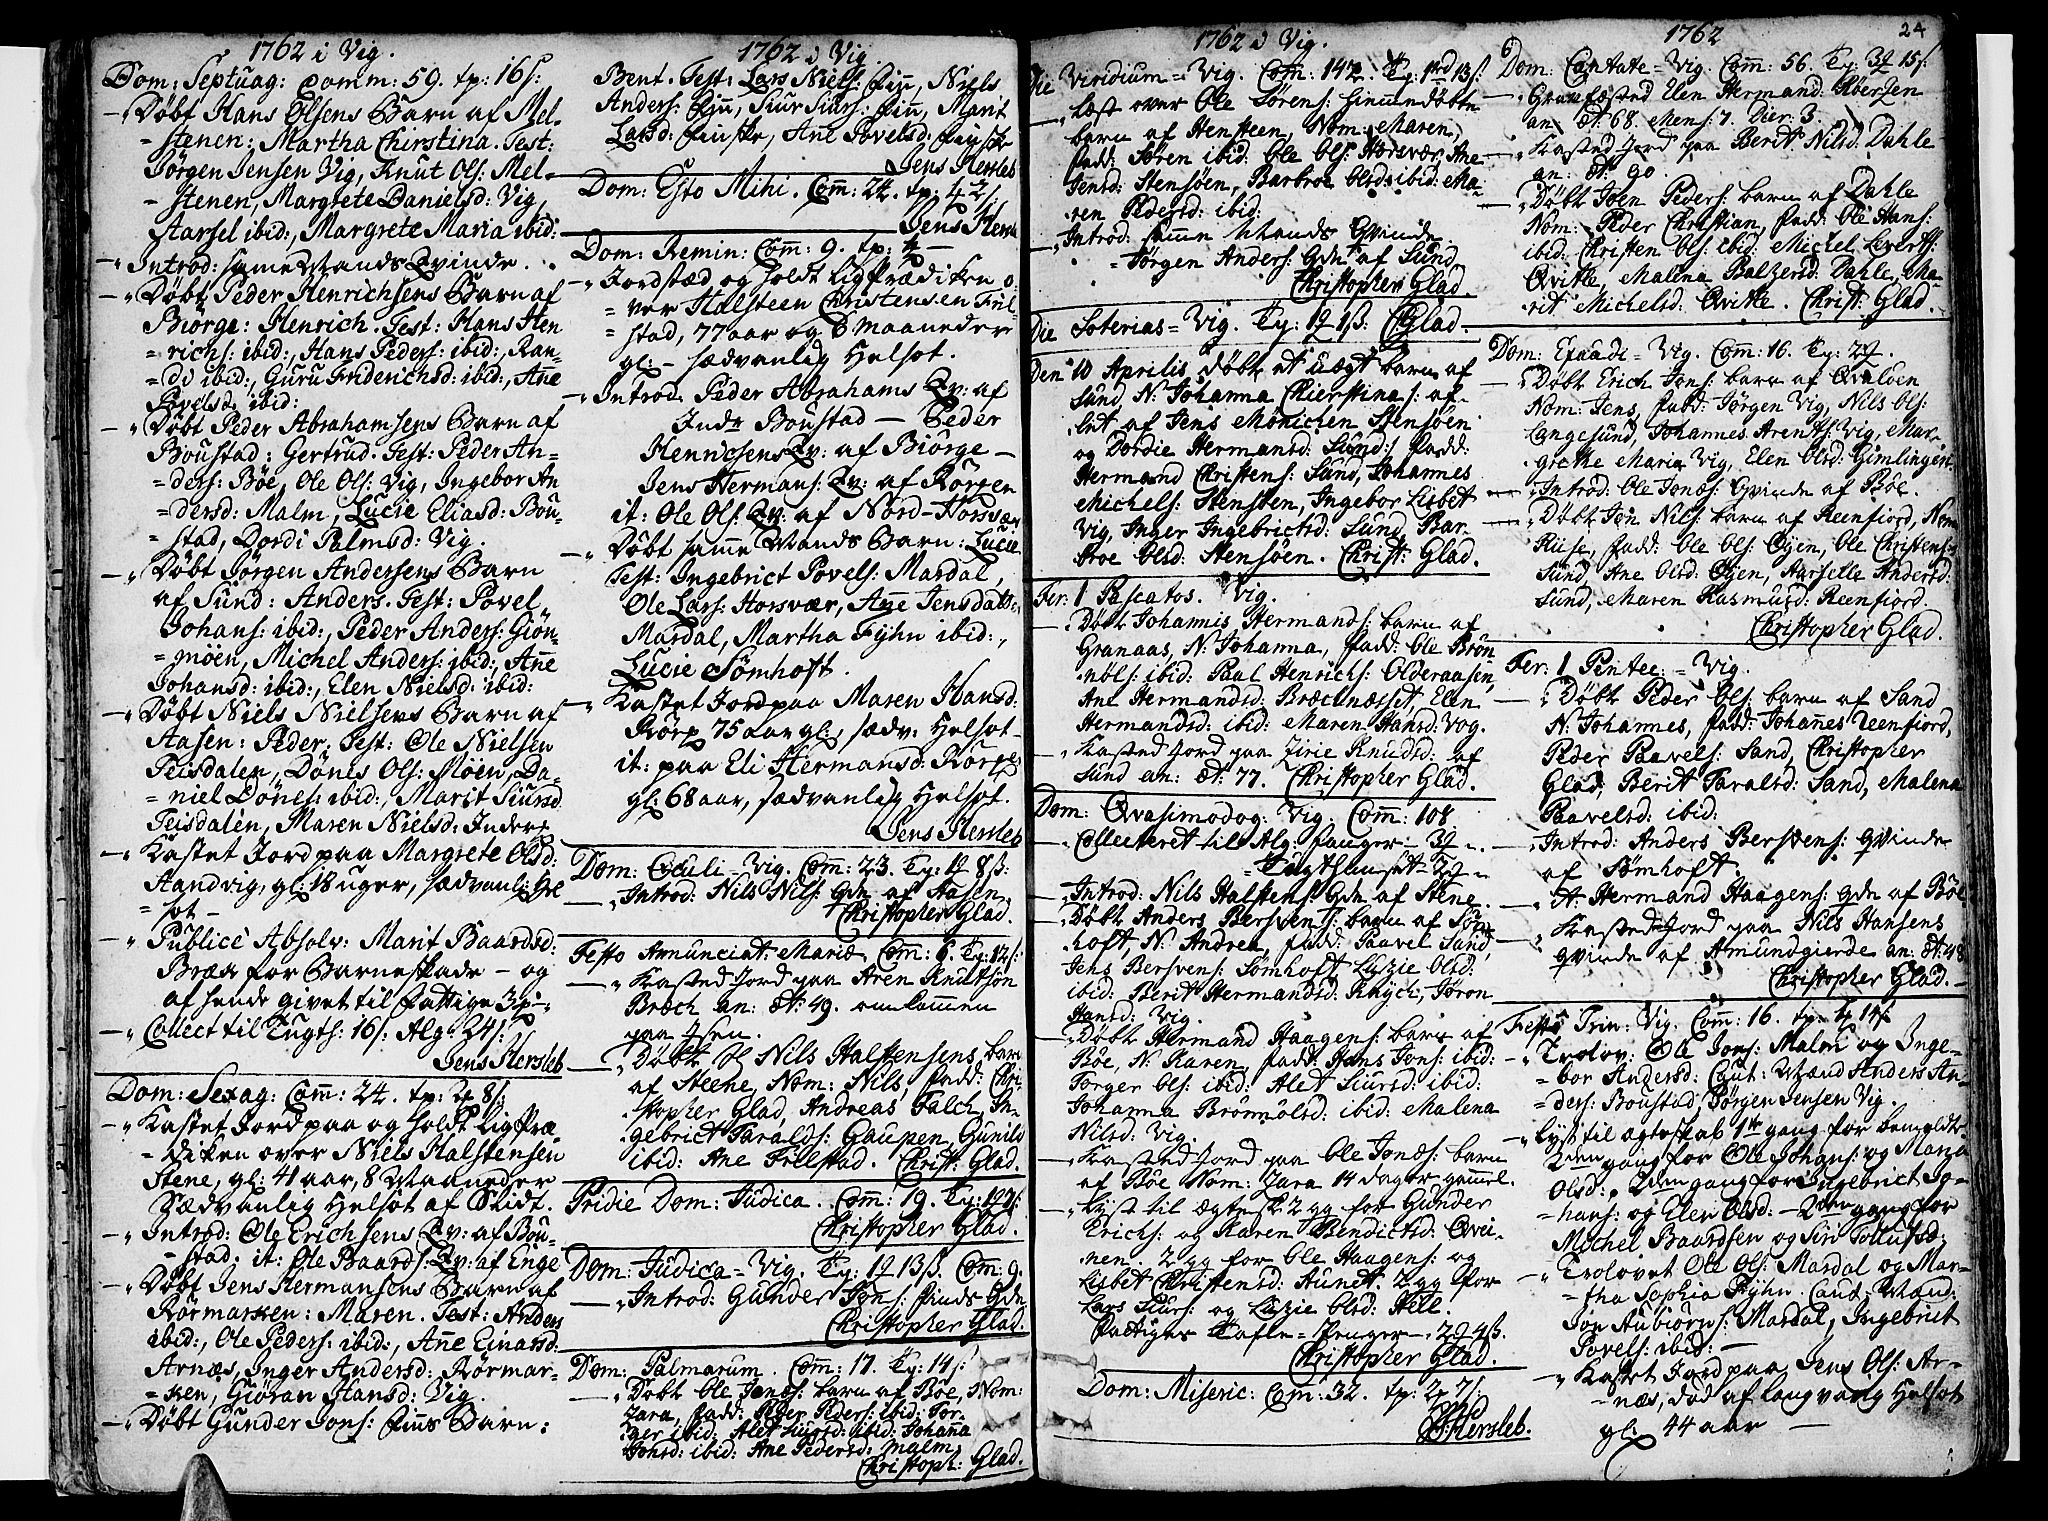 1762 i Vig.
Dom: Septuag: Comm: 59. tp: 16 s:
Døbt Hans Olsens Barn af Mel-
= stenen: Martha Chirstina. Test:
Jørgen Jensen Vig, Knut Ols: Mel-
- stenen, Margrete Danielsd: Vig,
Aarsel ibid:, Margrete Maria ibid:
Introd: samme Mands Qvinde.
Døbt Peder Henrichsens Barn af
Biørge: Henrich. Test: Hans Hen
= richs: ibid:, Hans Peders: ibid:, Ran-
= di ibid:, Guru Friderichsd: ibid:, Ane
Povelsd: ibid:
Døbt Peder Abrahamsens Barn af
Boustad: Gertrud. Test: Peder An-
= ders: Bøe, Ole Ols: Vig, Ingebor An
= dersd: Malm, Lucie Eliasd: Bou-
= stad, Dordi Palmsd: Vig.
Døbt Jørgen Andersens Barn
af Sund: Anders. Test: Povel
Johans: ibid:, Peder Anders: Giøn-
= møen, Michel Anders: ibid:, Ane
Johansd: ibid:, Elen Nielsd: ibid:
Døbt Niels Nielsens Barn af
Aasen: Peder. Test: Ole Nielsen
Teisdalen, Dønes Ols: Møen, Da-
= niel Dønes: ibid:, Marit Siursd
Teisdalen, Maren Nielsd: Indre
Kastet Jord paa Margrete Olsd:
Aandvig, gl: 18 uger, sædvanl: Hel
= sot -
Publicè Absolv: Marit Baardsd:
Bræk for Barneskade - og
af hende givet til fattige 3
Collect til Tugts: 16 s: Alg: 24 s:
Jens Hersleb
Dom: Sexag: Comm: 24. tp: 8 s:
Kastet Jord paa og holdt Ligpræ-
= diken over Niels Halstensen
Stene, gl: 41 aar, 8 Maaneder
Sædvanlig Helsot af Slidt.
Introd: Ole Erichsens Qv: af Bou-
- stad. it: Ole Baards: Qv: af Enge
Døbt Jens Hermansens Barn af
Rörmarken: Maren. Test: Anders
ibid:, Ole Peders: ibid:, Ane Einarsd:
Arnæs, Inger Andersd: Rörmar-
= ken, Giøran Hansd: Vig.
Døbt Gunder Jons: Fins Barn:
1762 i Vig
Bent. Test: Lars Niels: Fin, Niels
Anders: Fin, Siur Siurs: Fin, Marit
Larsd: Finske, Ane Povelsd: Finske
Jens Hersleb
Dom: Esto Mihi. Comm: 24. tp:
Jens Hersleb
Dom: Remin: Comm: 9. tp:
Jordstæd og holdt Ligprædiken o-
= ver Halsteen Christensen Fril-
stad, 77 aar og 6 maaneder
gl: - sædvanlig Helsot.
Introd: Peder Abrahams Qv: af
Indr Boustad - Peder
Henrichsens Qv: af Biørge -
Jens Hermans: Qv: af Rörgen
it: Ole Ols: Qv: af Nord-Horsvær
Døbt samme Mands Barn: Lucie
Test: Ingebrict Povels: Mardal,
Ole Lars: Horsvær, Ane Jensdatt:
Mardal, Martha Fyhn ibid:,
Lucie Sømhoft.
Kastet Jord paa Maren Hansd:
Rörg 75 aar gl:, sædv: Helsot -
it: paa Eli Hermansd: Rörgen
gl: 68 aar, sædvanlig Helsot.
Jens Hersleb
Dom: Oculi - Vig. Comm: 23. Ty: 8 ß:
Introd: Nils Nils: Qdn af Aasen
Christopher Glad.
Festo Annunciat: Mariæ Com: 6. Ty: 12 s:
Kasted Jord paa Aren Knutsøn
Bræch an: æt: 49. omkommen
paa Isen.
Døbt Nils Halstensens barn
af Steene, Nom: Nils, fadd: Chri
stopher Glad, Andreas Falch, In-
gebrict Taralds: Gaupen, Gunild
ibid: Ane Fillstad. Christ: Glad.
Pridie Dom: Judica. Com: 19. Ty:
Christopher Glad.
Dom: Judica = Vig. Ty: 13 ß. Com: 9.
Introd: Gunder Jons: Finds Qdn
Christopher Glad.
Dom: Palmarum. Com: 17. Ty: 14 s:
Døbt Ole Jonæs: barn af Bøe, Nom:
Zara, fadd: Peder Peders: ibid: Tor-
ger ibid: Alet Siursd: ibid: Johana
Johsd: ibid: Ane Pedersd: Malm.
Christoph: Glad.
1762 i Vig.
Die Viridium = Vig. Com: 142 Ty: 1 rd 13 s:
Læst over Ole Sørens: hiemmedøbte
barn af Hensteen, Nom: Maren,
fadd: Søren ibid: Ole Ols: Horsvær, Ane
Jensd: Stensøen, Barbroe Olsd: ibid: Ma-
ren Pedersd: ibid:
Introd: samme Mands Qvinde
= Jørgen Anders: Qdn af Sund
Christopher Glad.
Die Soterias = Vig. Ty: 1 ß. CGlad.
Den 10 Aprilis Døbt et uægt barn af
Sund N: Johanna Chierstina: af-
let af Jens Mönichen Stensøen
og Dordie Hermansd: Sund: fadd:
Hermand Christens: Sund, Johannes
Michels: Stensøen, Ingebor Lisbet
Vig, Inger Ingebrichtsd: Sund, Bar-
broe Olsd: Stensøen. Christ: Glad.
Fer: 1 Pascatos. Vig.
Døbt Johannis Hermands: barn af
Granaas, N: Johanna, fadd: Ole Brön-
nöls: ibid: Paul Henrichs: Olderaasen,
Ane Hermandsd: Brochnæsset, Elen
Hermandsd: ibid: Maren Hansd: Vog.
Kasted Jord paa Zirie Knudsd: af
Sund an: æt: 77. Christopher Glad.
Dom: Qvasimodog: Vig. Comm: 108
Collecteret til Alg: fanger
= Tugthuuset
Introd: Nils Halstens: Qdn af Stene.
Døbt Anders Bersvents: barn af Søm-
hoft, N: Andrea, fadd: Paavel Sund,
Jens Bersvens: Sømhoft, Luzie Olsd:
ibid: Berit Hermandsd: Knÿch, Jøron
Hansd: Vig.
Døbt Hermand Haagens: barn af
Bøe, N: Karen, fadd: Hans Jons: ibid:
Torger Ols: ibid: Alet Siursd: ibid:
Johanna Brönnölsd: ibid: Malena
Nilsd: Vig.
Kasted Jord paa Ole Jonæs: barn
af Bøe Nom: Zara 14 dager gammel.
Lyst til ægtesk: 2 gg for Gunder
Erichs: og Karen Bendictsd: Qvi-
nen 2 gg for Ole Haagens: og
Lisbet Christensd: Aunet, 2 gg for
Lars Siurs: og Luzie Olsd: Helle.
Fattiges Tafle-Penger 4 ß.
Christopher Glad.
Dom: Miseric: Com: 32. tp: 7 s:
JHersleb.
1762
24
Dom: Cantate = Vig. Com: 56. Ty: 15 s:
Graufæsted Elen Hermand: Aberzen
an: æt: 68. Mens: 7. Dier: 3.
Kasted Jord paa Berit Nilsd: Dahle
an: æt: 90.
Døbt Joen Peders: barn af Dahle
Nom: Peder Christian, fadd: Ole Hans:
ibid: Christen Ols: ibid: Michel Leverts:
Qvitte, Malena Baltzersd: Dahle, Ma-
rit Michelsd: Qvitte. Christ: Glad.
Dom: Exaudi = Vig. Com: 16. Ty:
Døbt Erich Jons: barn af Qvaløen
Nom: Jens, fadd: Jørgen Vig, Nils Ols:
Langesund, Johannes Arents: Vig, Mar-
grethe Maria Vig, Elen Olsd: Gimlingen
Introd: Ole Jonæs: Qvinde af Bøe.
Døbt Jon Nils: barn af Reenfiord, Nom
Riise, fadd: Ole Ols: Øyen, Ole Christens:
Sund, Ane Olsd: Øyen, Aarselle Andersd:
Sund, Maren Rasmusd: Reenfiord.
Christopher Glad.
Fer: 1 Pentec: = Vig.
Døbt Peder Ols: barn af Sand
N: Johannes, fadd: Johannes Reenfiord,
Peder Paavels: Sand, Christopher
Glad, Berit Taralsd: Sand, Malena
Paavelsd: ibid:
Introd: Anders Bersvens: Qvinde
af Sømhoft.
It: Hermand Haagens: Qdn af Bøe
Kasted Jord paa Nils Hansens
qvinde af Amundgierde an: æt: 48
Christopher Glad.
Festo Trin: Vig. Comm: 16. tp: 14 s:
Trolov: Ole Jons: Malm og Inge-
= bor Andersd: Caut: Mænd Anders An-
= ders: Boustad, Jørgen Jensen Vig.
Lyst til ægteskab 1te gang for bemeldte
2den gang for Ole Johans: og Marja
Olsd:, 2den gang for Ingebrict Jo-
= hans: og Elen Olsd: - 2den gang for
Michel Baardsen og Siri Tollufsd:
Trolovet Ole Ols: Mardal og Mar-
= tha Sophia Fyhn. Caut: Mænd:
Jon Aubiørns: Mardal, Ingebrict
Povels: ibid: -
Kastet Jord paa Jens Ols: Ar-
= næs, død af langvarig Helsot
gl: 44 aar -